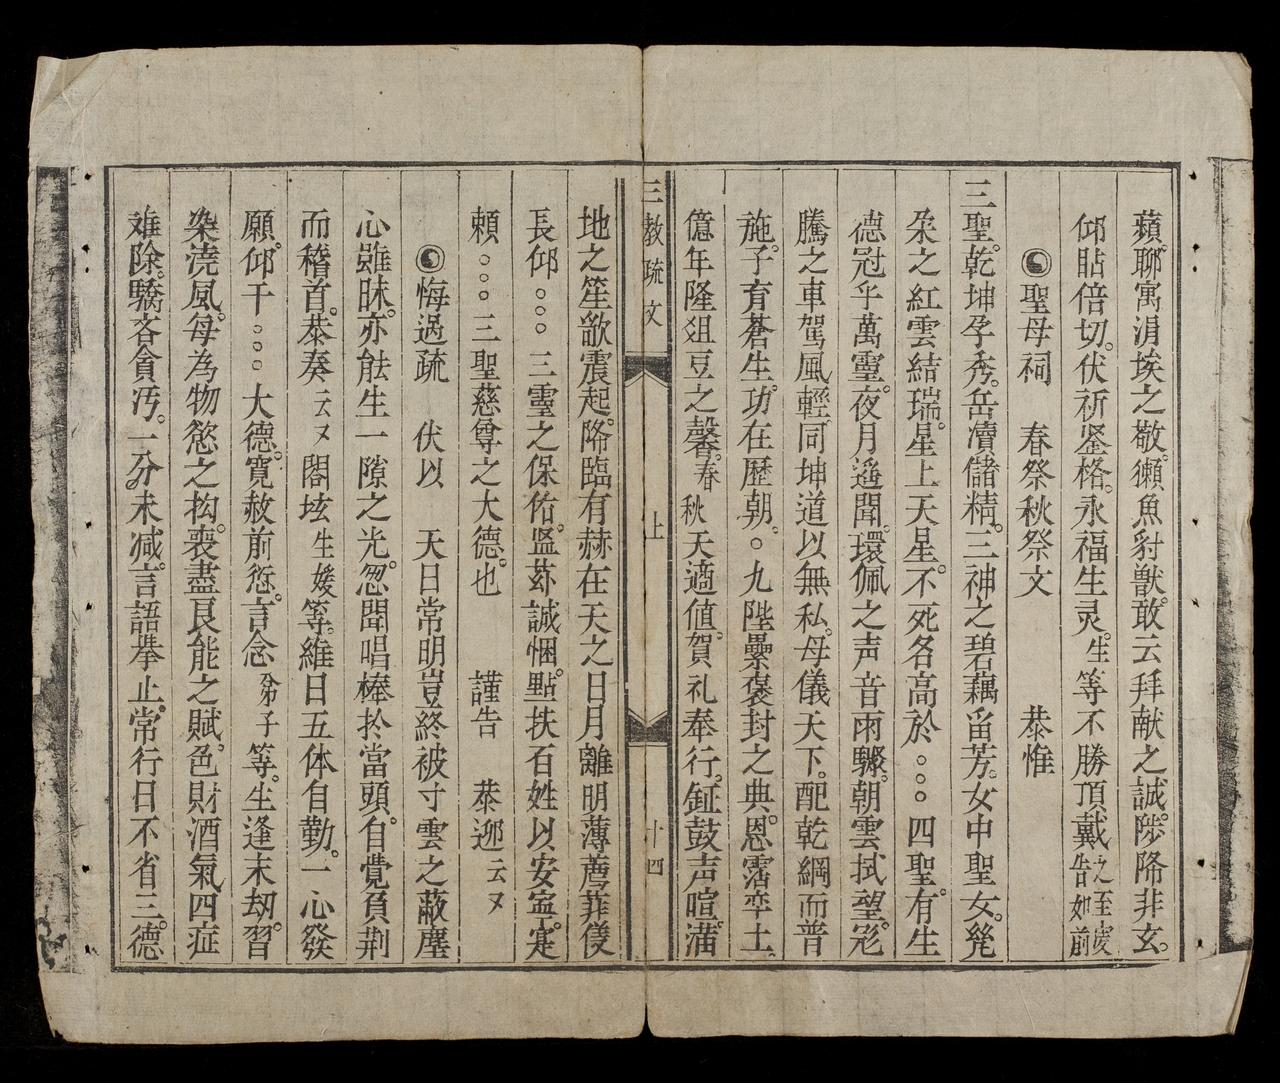 蘋聊寓涓埃之敬。獺魚豺獸。敢云拜献之誠。陟降非玄。
仰贴倍切。伏祈鉴格。永福生灵。生等不勝頂戴之至虔告如前
聖母祠 春祭秋祭文 恭惟
三聖。乾坤孕秀。岳瀆儲精。三神之碧藕畱芳。女中聖女。㐬
朶之紅雲結瑞。星上天星。不死各高於○○○四聖。有生
德冠乎萬靈。夜月遥聞。環佩之声音雨驟。朝雲拭望。彩
騰之車駕風輕。同坤道以無私。母儀天下。配乾綱而普
施。子育蒼生。功在歷朝。○九陛纍褒封之典。恩霑率土
億年隆俎豆之馨。春秋天適値。賀礼奉行。鉦鼓声喧。滿
三教疏文 上 十四
地之笙歌震起。降臨有赫。在天之日月離明。薄薦菲儀
長仰○○○三靈之保佑。监玆誠悃。點扶百姓以安寧。寔
頼○○○三聖慈尊之大德。也 謹告 恭迎云々
悔過疏 伏以 天日常明。豈終被寸雲之蔽。塵
心雖昧。亦能生一隙之光。忽聞唱棒於當頭。自覺負荆
而稽首。恭奏云々閣垓生媛等。維日五体自勤。一心發
願。仰干○○○大德。寛赦前愆。言念弟子等。生逢末刼。習
染澆風。每為物慾之拘。喪盡良能之賦。色財酒氣四症
难除。驕吝貪汚。一分未减。言語擧止。常行日不省三。德